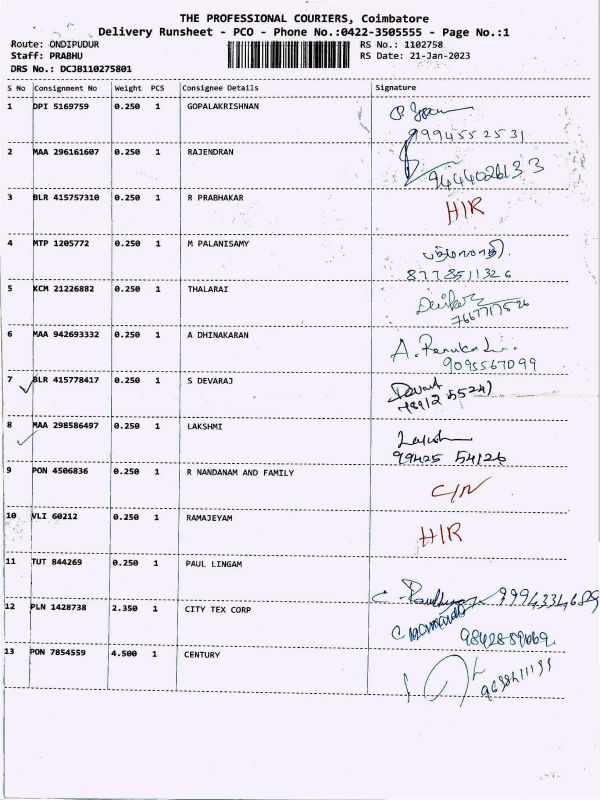 THE PROFESSIONAL COURIERS, Coimbatore
Delivery Runsheet - PCO - Phone No.:0422-3505555 - Page No.:1
Route: ONDIPUDUR RS No.: 1102758
Staff: PRABHU RS Date: 21-Jan-2023
DRS No.: DCJB110275801
S No Consignment No Weight PCS Consignee Details Signature
1 DPI 5169759 0.250 1 GOPALAKRISHNAN
9994552531
2 MAA 296161607 0.250 1 RAJENDRAN
9444026133
3 BLR 415757310 0.250 1 R PRABHAKAR H/R
4 MTP 1205772 0.250 1 M PALANISAMY
8778511326
5 KCM 21226882 0.250 1 THALARAI
7667717526
6 MAA 942693332 0.250 1 A DHINAKARAN A. Renuka
9095567099
7 BLR 415778417 0.250 1 S DEVARAJ Devaraj
8 MAA 298586497 0.250 1 LAKSHMI
99425 54126
9 PON 4506836 0.250 1 R NANDANAM AND FAMILY C/N
10 VLI 60212 0.250 1 RAMAJEYAM H/R
11 TUT 844269 0.250 1 PAUL LINGAM
9994334689
12 PLN 1428738 2.350 1 CITY TEX CORP
13 PON 7854559 4.500 1 CENTURY